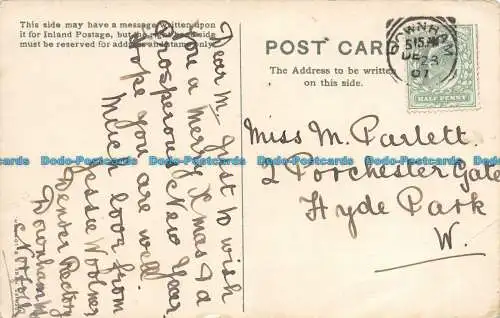 This side may have a message written upon
it for Inland Postage, but the right hand side
must be reserved for address and stamp only.
POST CARD
The Address to be written
on this side.
DOWNHAM
5.15 PM
DE 23
07
HALF PENNY
Miss M. Parlett.
2 Porchester Gate
Hyde Park
W.
Dear M Just to wish
you a merry Xmas & a
Prosperous New Year,
hope you are well.
Much love from
Jessie Woolner
Denver Rectory
Downham Mkt
Norfolk
Dodo-Postcards Dodo-Postcards Dodo-Postcards Dodo-Postcards